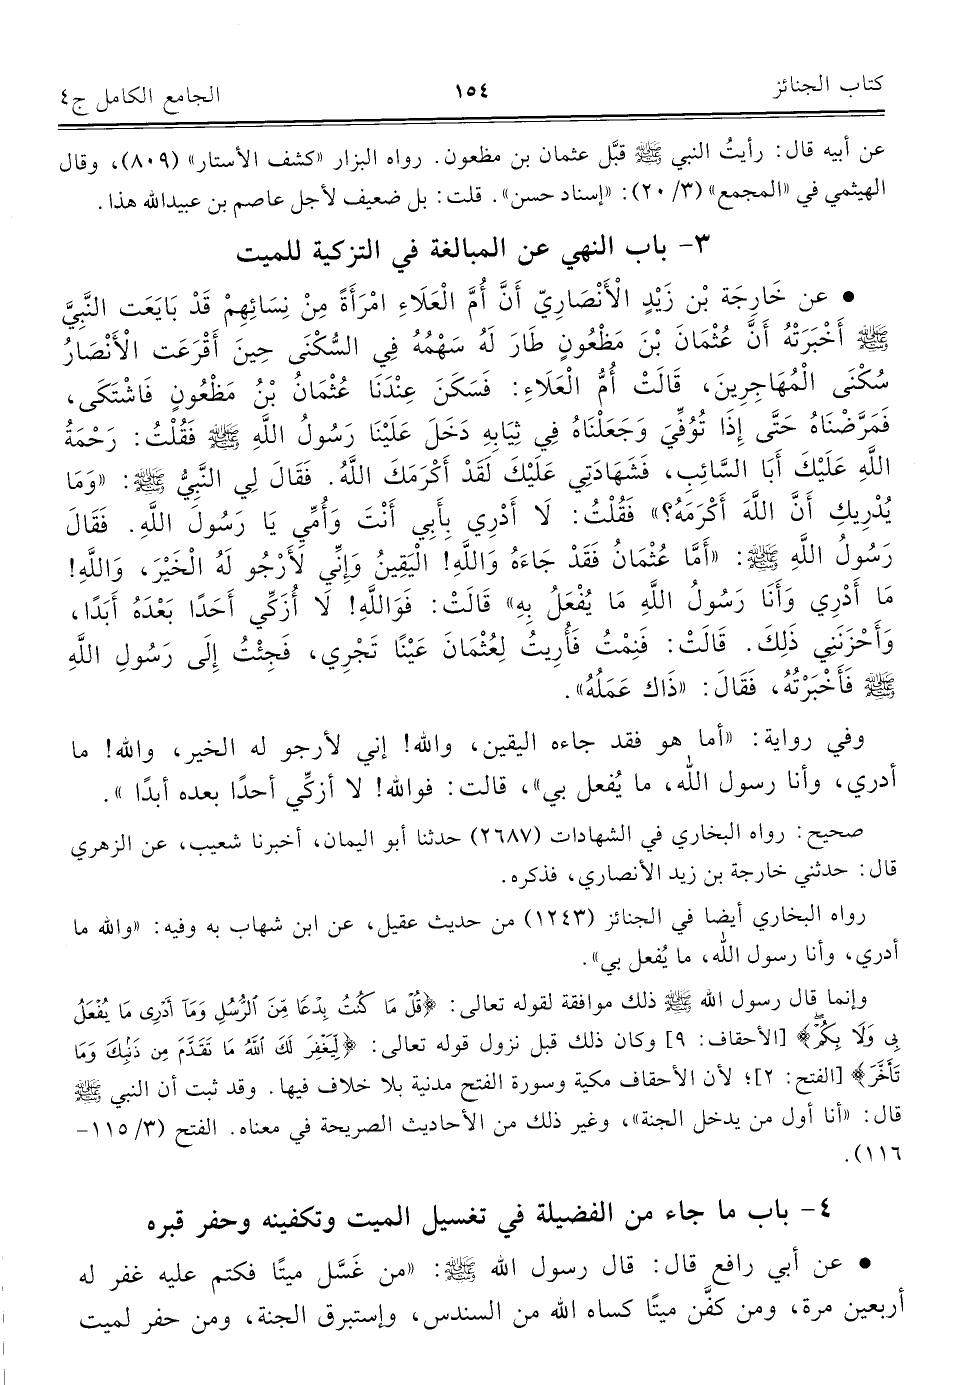 كتاب الجنائز ١٥٤ الجامع الكامل ج٤
عن أبيه قال: رأيتُ النبي ﷺ قبَّل عثمان بن مظعون. رواه البزار «كشف الأستار» (٨٠٩)، وقال
الهيثمي في «المجمع» (٣/ ٢٠): «إسناد حسن». قلت: بل ضعيف لأجل عاصم بن عبيدالله هذا.
٣- باب النهي عن المبالغة في التزكية للميت
● عن خَارِجَة بْن زَيْدٍ الْأَنْصَارِيّ أَنَّ أُمَّ الْعَلَاءِ امْرَأَةً مِنْ نِسَائِهِمْ قَدْ بَايَعَت النَّبِيَّ
ﷺ أَخْبَرَتْهُ أَنَّ عُثْمَانَ بْنَ مَظْعُونٍ طَارَ لَهُ سَهْمُهُ فِي السُّكْنَى حِينَ أَقْرَعَت الْأَنْصَارُ
سُكْنَى الْمُهَاجِرِينَ، قَالَتْ أُمُّ الْعَلَاءِ: فَسَكَنَ عِنْدَنَا عُثْمَانُ بْنُ مَظْعُونٍ فَاشْتَكَى،
فَمَرَّضْنَاهُ حَتَّى إِذَا تُوُفِّيَ وَجَعَلْنَاهُ فِي ثِيَابِهِ دَخَلَ عَلَيْنَا رَسُولُ اللَّهِ ﷺ فَقُلْتُ: رَحْمَةُ
اللَّهِ عَلَيْكَ أَبَا السَّائِبِ، فَشَهَادَتِي عَلَيْكَ لَقَدْ أَكْرَمَكَ اللَّهُ. فَقَالَ لِي النَّبِيُّ ﷺ: «وَمَا
يُدْرِيكِ أَنَّ اللَّهَ أَكْرَمَهُ؟» فَقُلْتُ: لَا أَدْرِي بِأَبِي أَنْتَ وَأُمِّي يَا رَسُولَ اللَّهِ. فَقَالَ
رَسُولُ اللَّهِ ﷺ: «أَمَّا عُثْمَانُ فَقَدْ جَاءَهُ وَاللَّهِ! الْيَقِينُ وَإِنِّي لَأَرْجُو لَهُ الْخَيْرَ، وَاللَّهِ!
مَا أَدْرِي وَأَنَا رَسُولُ اللَّهِ مَا يُفْعَلُ بِهِ» قَالَتْ: فَوَاللَّهِ! لَا أُزَكِّي أَحَدًا بَعْدَهُ أَبَدًا،
وَأَحْزَنَنِي ذَلِكَ. قَالَتْ: فَنِمْتُ فَأُرِيتُ لِعُثْمَانَ عَيْنًا تَجْرِي، فَجِئْتُ إِلَى رَسُولِ اللَّهِ
ﷺ فَأَخْبَرْتُهُ، فَقَالَ: «ذَاكَ عَمَلُهُ».
وفي رواية: «أما هو فقد جاءه اليقين، والله! إني لأرجو له الخير، والله! ما
أدري، وأنا رسول الله، ما يُفعل بي»، قالت: فوالله! لا أزكِّي أحدًا بعده أبدًا ».
صحيح: رواه البخاري في الشهادات (٢٦٨٧) حدثنا أبو اليمان، أخبرنا شعيب، عن الزهري
قال: حدثني خارجة بن زيد الأنصاري، فذكره.
رواه البخاري أيضا في الجنائز (١٢٤٣) من حديث عقيل، عن ابن شهاب به وفيه: «والله ما
أدري، وأنا رسول الله، ما يُفعل بي».
وإنما قال رسول الله ﷺ ذلك موافقة لقوله تعالى: ﴿قُلْ مَا كُنتُ بِدْعًا مِّنَ ٱلرُّسُلِ وَمَآ أَدْرِى مَا يُفْعَلُ
بِى وَلَا بِكُمْ﴾ [الأحقاف: ٩] وكان ذلك قبل نزول قوله تعالى: ﴿لِّيَغْفِرَ لَكَ ٱللَّهُ مَا تَقَدَّمَ مِن ذَنۢبِكَ وَمَا
تَأَخَّرَ﴾ [الفتح: ٢]؛ لأن الأحقاف مكية وسورة الفتح مدنية بلا خلاف فيها. وقد ثبت أن النبي ﷺ
قال: «أنا أول من يدخل الجنة»، وغير ذلك من الأحاديث الصريحة في معناه. الفتح (٣/ ١١٥-
١١٦).
٤- باب ما جاء من الفضيلة في تغسيل الميت وتكفينه وحفر قبره
● عن أبي رافع قال: قال رسول الله ﷺ: «من غَسَّل ميتًا فكتم عليه غفر له
أربعين مرة، ومن كفَّن ميتًا كساه الله من السندس، وإستبرق الجنة، ومن حفر لميت